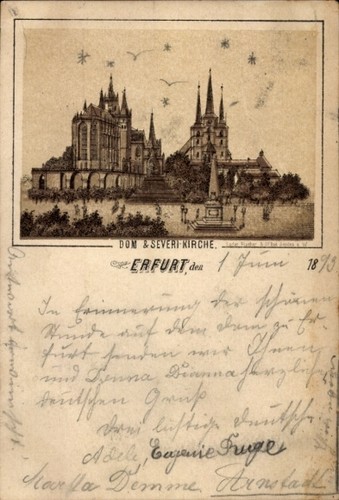 DOM & SEVERI-KIRCHE.
ERFURT, den 1 Juni 1893
In Erinnerung der schönen
Stunde auf dem dom zu Er-
furt senden wir Ihnen
und Donna Bianna herzlichen
deutschen Gruß
drei lustige deutsche
Adele, Eugenie Truge
Martha Demme Arnstadt